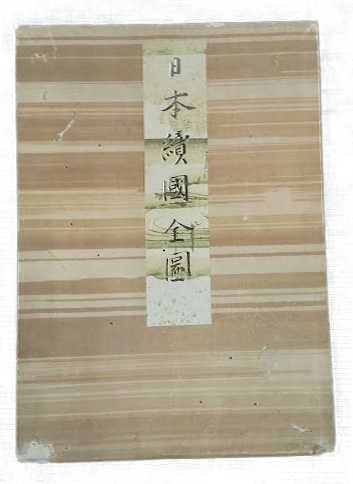 日本續國全圖